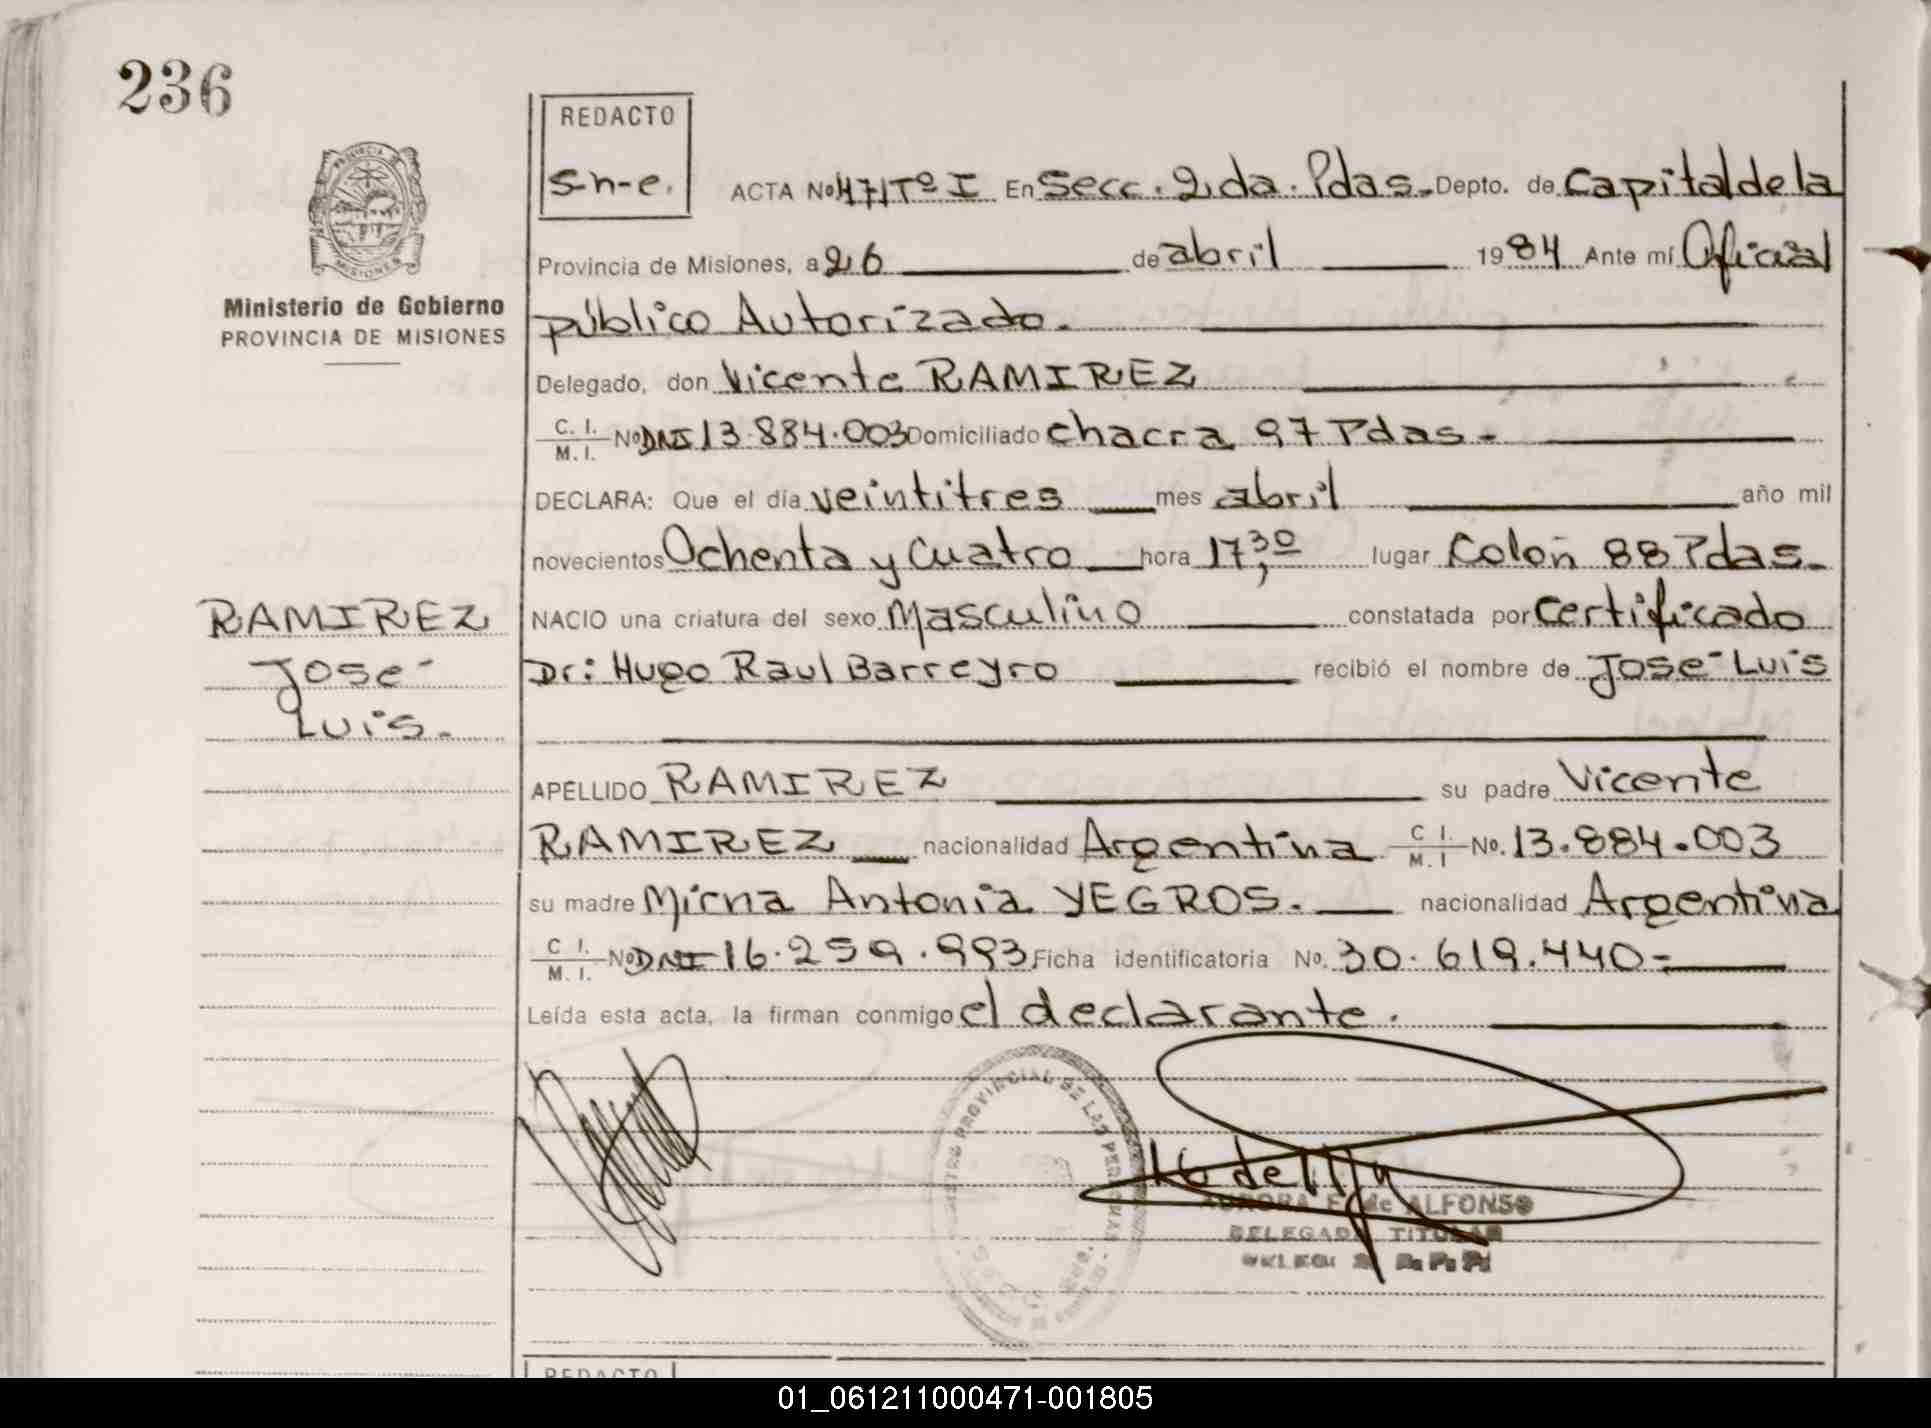 236
REDACTO
s-n-e.
ACTA No 471 Tº I En Secc. 2da. Pdas. Depto. de Capital de la
PROVINCIA DE
MISIONES
Ministerio de Gobierno
PROVINCIA DE MISIONES
Provincia de Misiones, a 26 de abril 1984 Ante mí Oficial
público Autorizado.
Delegado, don Vicente RAMIREZ
C. I. / M. I. No DNI 13.884.003 Domiciliado chacra 97 Pdas.
DECLARA: Que el día veintitres mes abril año mil
novecientos Ochenta y Cuatro hora 17,30 lugar Colon 88 Pdas.
NACIO una criatura del sexo Masculino constatada por certificado
Dr: Hugo Raul Barreyro recibió el nombre de José Luis
RAMIREZ
José
Luis.
APELLIDO RAMIREZ su padre Vicente
RAMIREZ nacionalidad Argentina C I. / M. I No. 13.884.003
su madre Mirna Antonia YEGROS. nacionalidad Argentina
C I. / M. I. No DNI 16.259.993 Ficha identificatoria No. 30.619.440=
Leída esta acta, la firman conmigo el declarante.
PROVINCIAL DE LAS PERSONAS
AURORA F. de ALFONSO
DELEGADA TITULAR
REDACTO
01_061211000471-001805